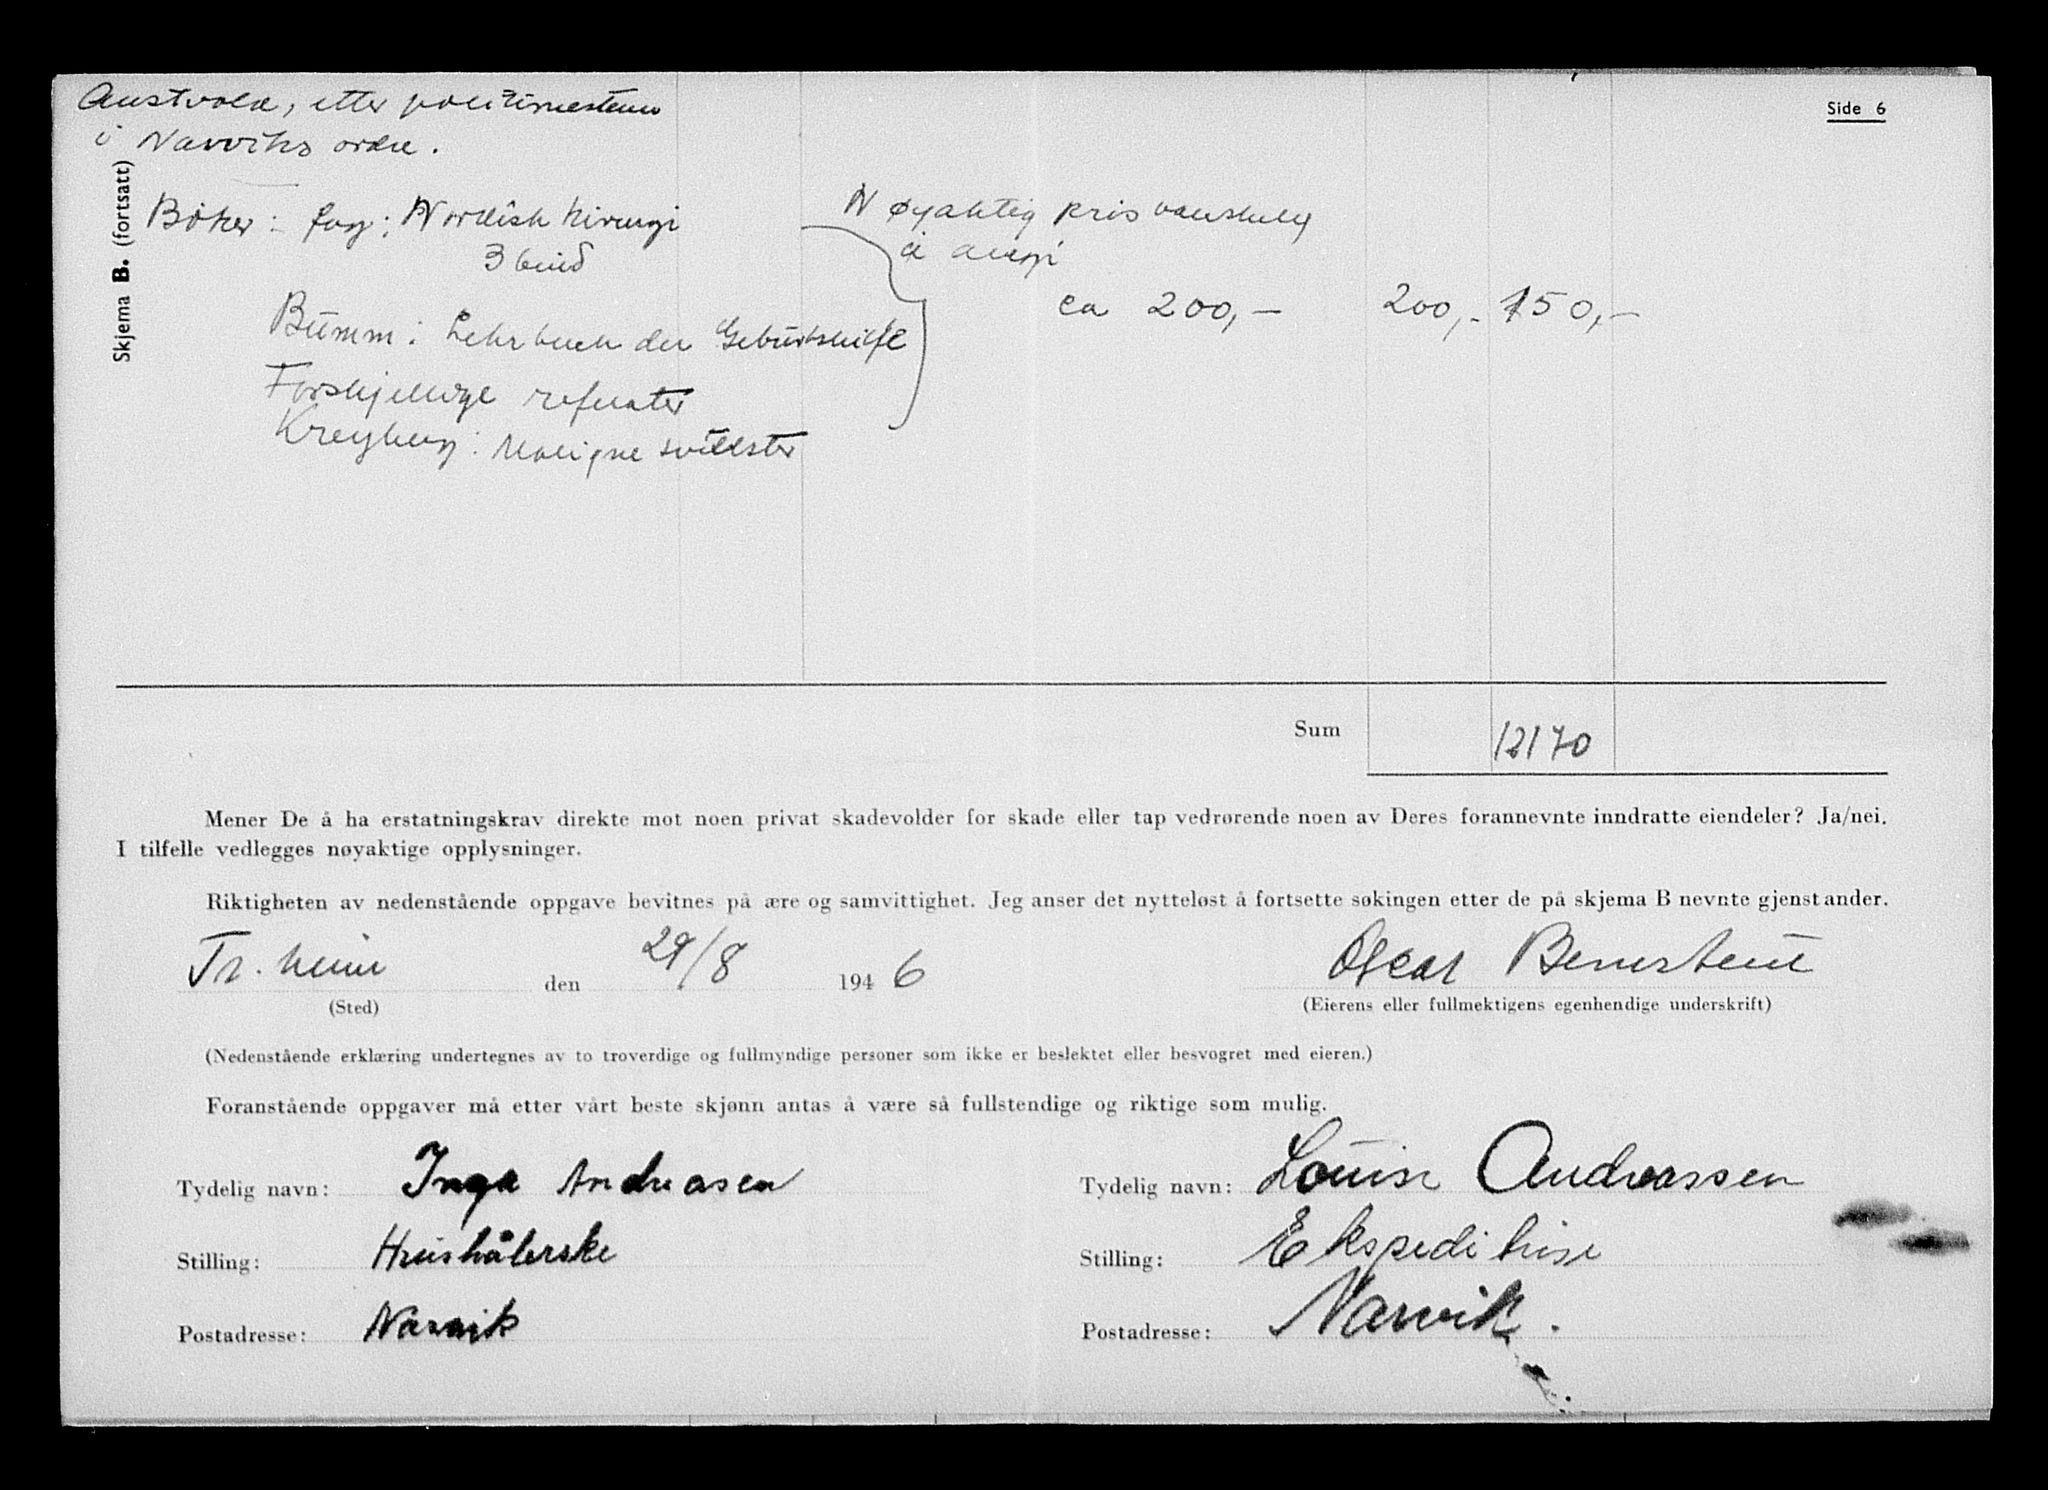 Austvold, etter politimesteren
i Narviks ordre.
Side 6
Skjema B. (fortsatt)
Bøker: fag: Nordisk kirurgi
3 bind
Nøyaktig pris vanskelig
å angi
ca 200,- 200,- 150,-
Bumm: Lehrbuch der Geburtshilfe
Forskjellige referater
Kreyberg: Maligne svulster
Sum 12170
Mener De å ha erstatningskrav direkte mot noen privat skadevolder for skade eller tap vedrørende noen av Deres forannevnte inndratte eiendeler? Ja/nei.
I tilfelle vedlegges nøyaktige opplysninger.
Riktigheten av nedenstående oppgave bevitnes på ære og samvittighet. Jeg anser det nytteløst å fortsette søkingen etter de på skjema B nevnte gjenstander.
Tr.heim den 29/8 1946 Oscar Bernstein
(Sted) (Eierens eller fullmektigens egenhendige underskrift)
(Nedenstående erklæring undertegnes av to troverdige og fullmyndige personer som ikke er beslektet eller besvogret med eieren.)
Foranstående oppgaver må etter vårt beste skjønn antas å være så fullstendige og riktige som mulig.
Tydelig navn: Inga Andreasen Tydelig navn: Louise Andreassen
Stilling: Hushålerske Stilling: Ekspeditrise
Postadresse: Narvik Postadresse: Narvik.